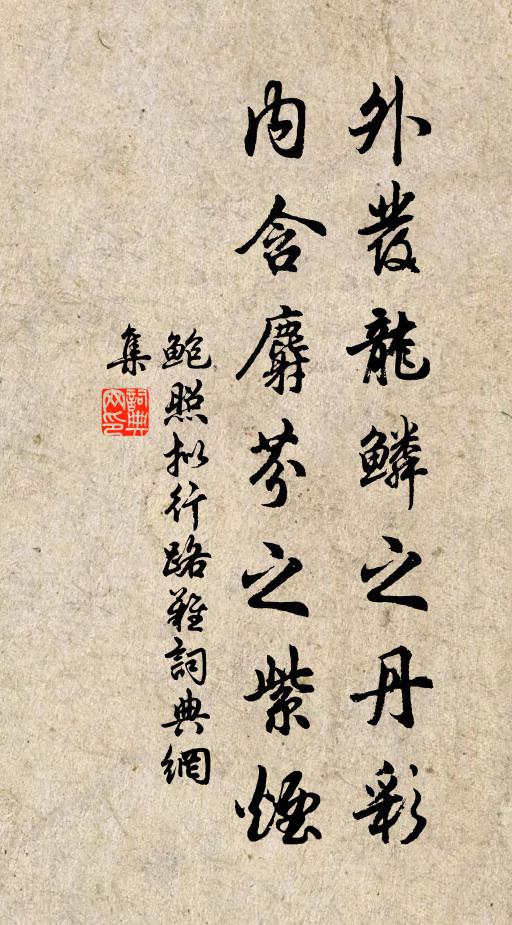 外發龍鱗之丹彩
內含麝芬之紫煙
鮑照拟行路難詞典網
集
詞典
网印